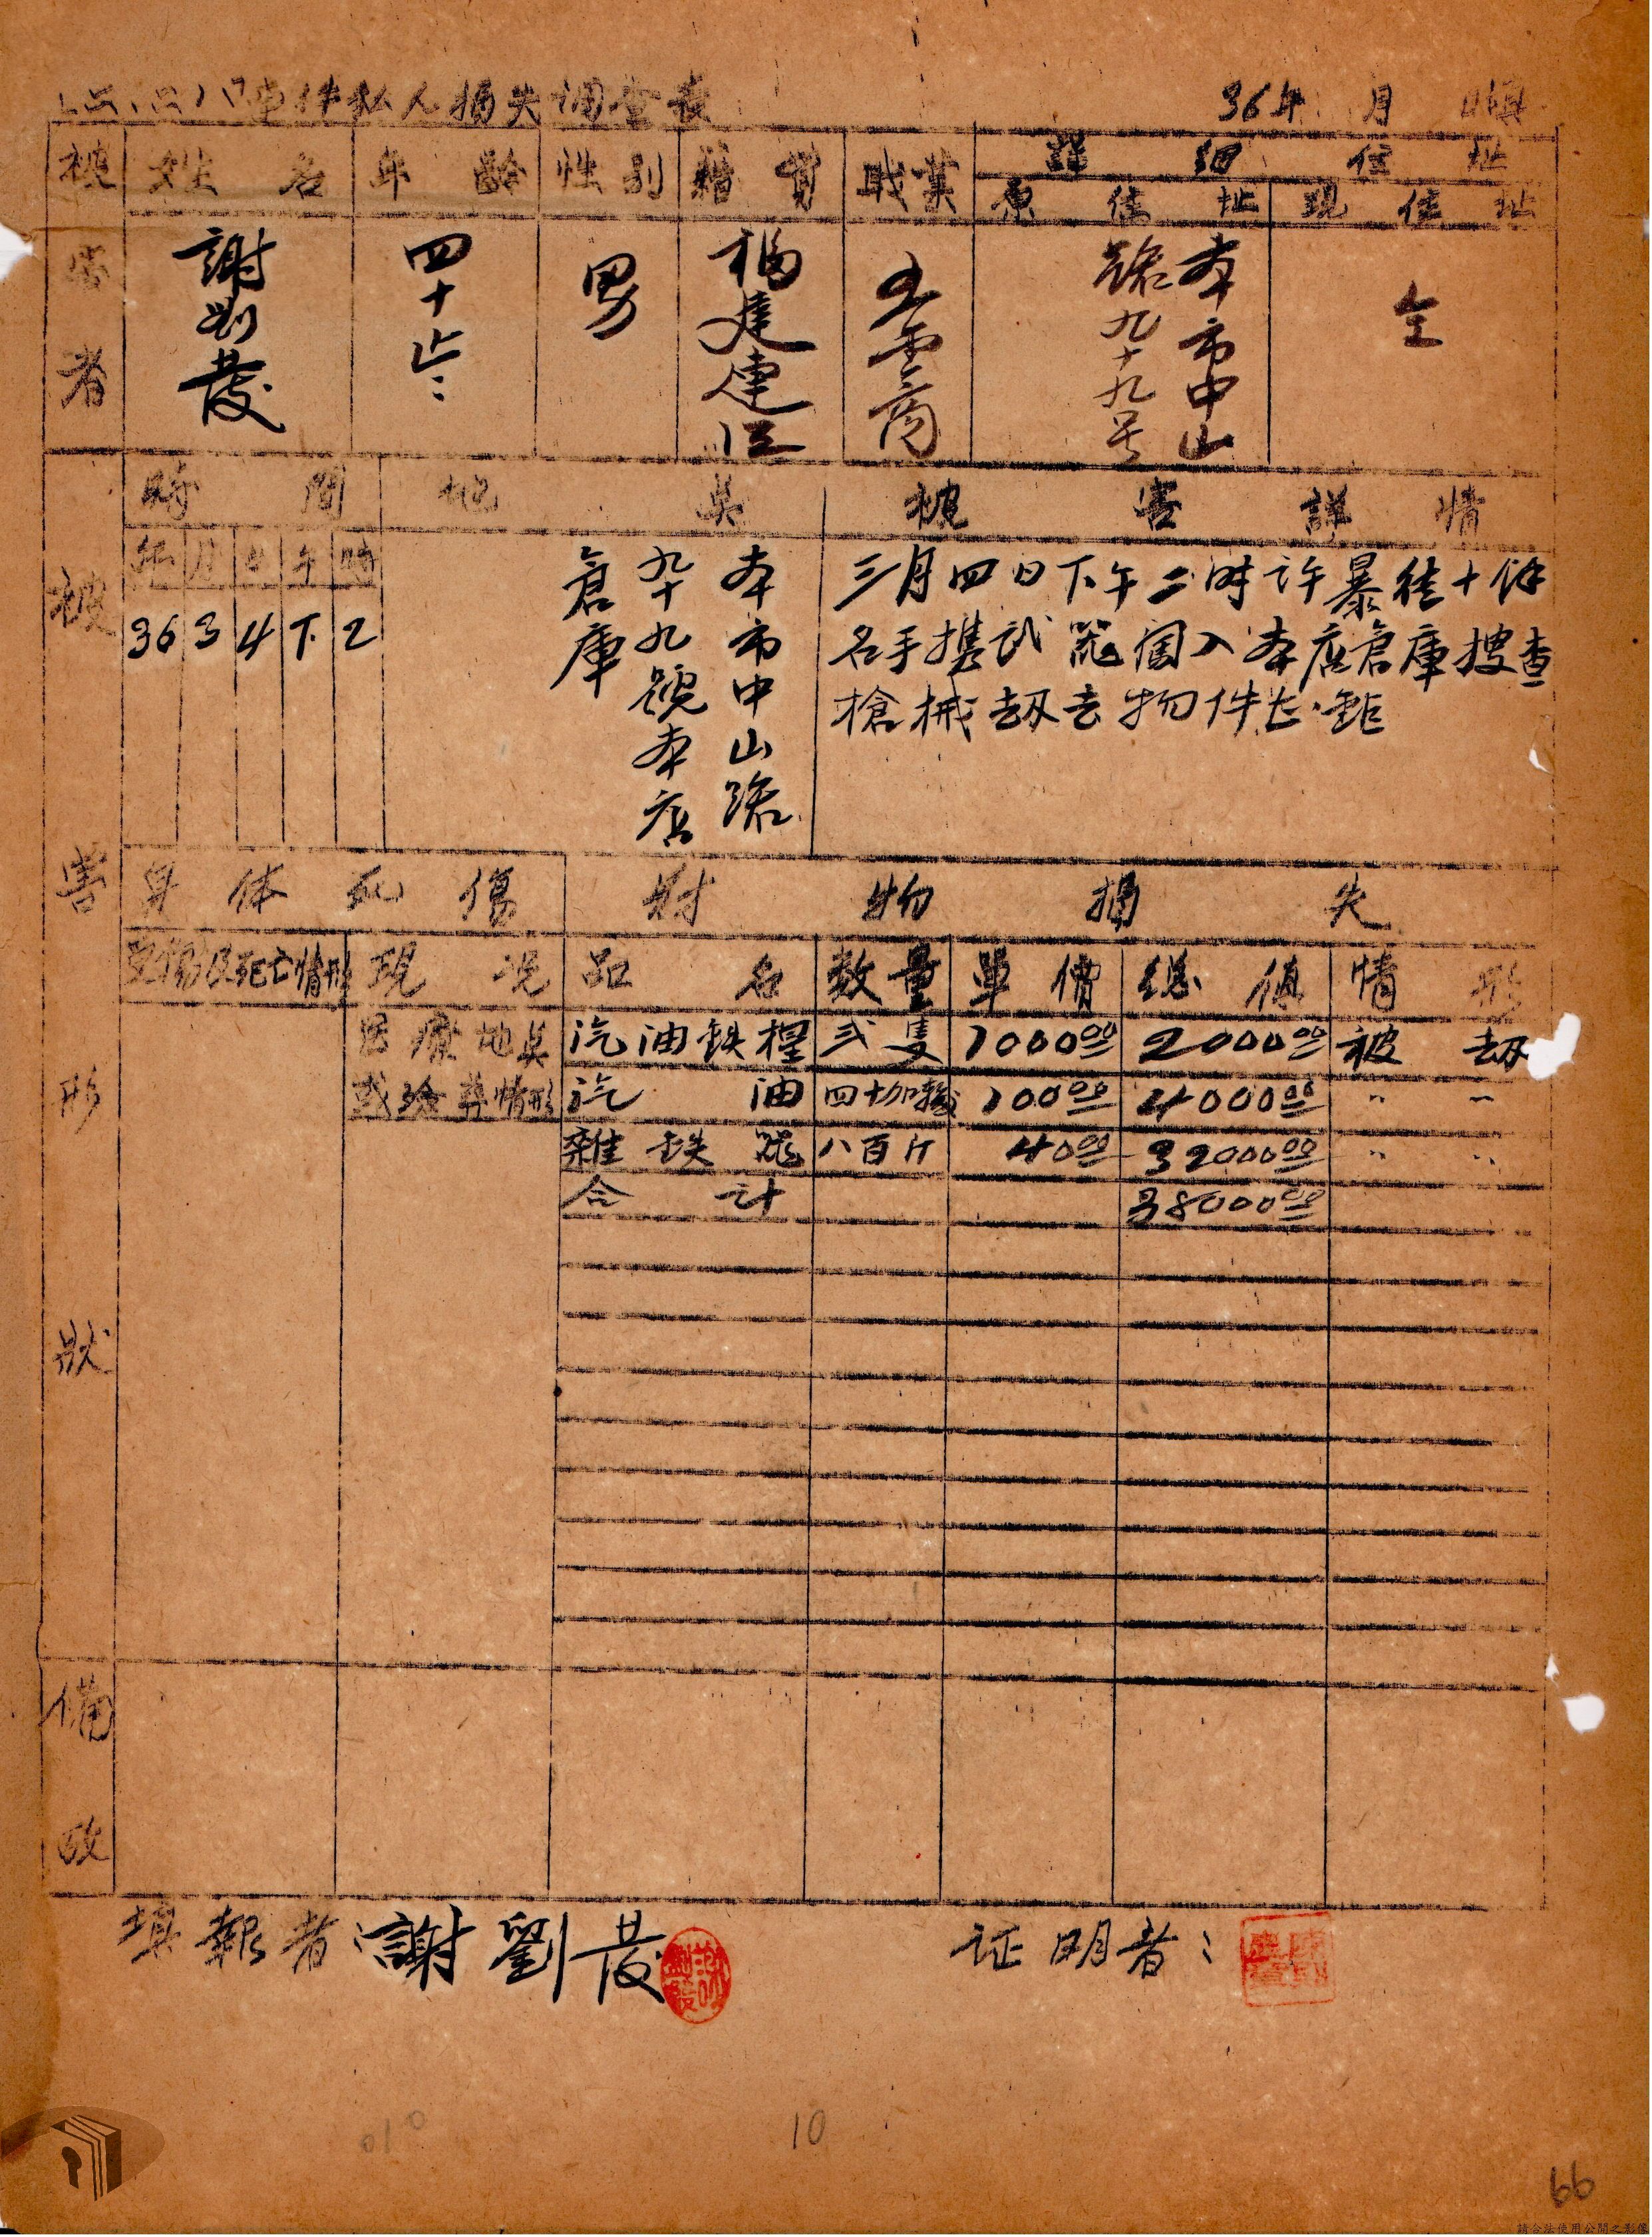 二、二八事件私人損失調查表
36年 月 日填
被害者
姓名 年齡 性別 籍貫 職業 詳細住址
原住址 現住址
謝劉發
四十
男
福建連江
商
本市中山
路九十九号
仝
被害形狀
時間 地點 被害詳情
年 月 日 午 時
36 3 4 下 2
本市中山路
九十九號本店
倉庫
三月四日下午二时许暴徒十余
名手携武器闖入本店倉庫搜查
槍械劫去物件
身体死傷 財物損失
受傷及死亡情形 現況 品名 数量 單價 總值 情形
医療地點
或殮葬情形
汽油鉄桶 弍隻 1000⁰⁰ 2000⁰⁰ 被劫
汽油 四十加 100⁰⁰ 4000⁰⁰ 〃 〃
雜鉄器 八百斤 40⁰⁰ 32000⁰⁰ 〃 〃
合計 38000⁰⁰
備攷
填報者:謝劉發
謝劉發
証明者:
010
10
66
請合法使用公開之影像